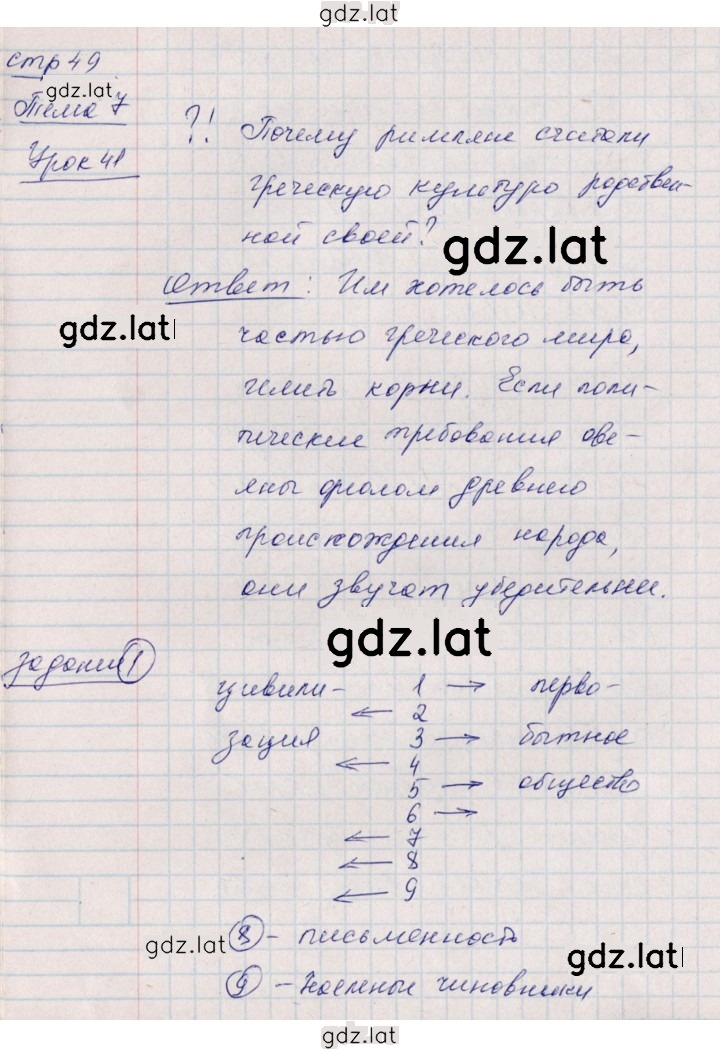 gdz.lat
стр 49
gdz.lat
Тема 7
Урок 41
?! Почему римляне считали
греческую культуро родствен-
ной своей?
gdz.lat
Ответ: Им хотелось быть
gdz.lat
частью греческого мира,
иметь корни. Если поли-
тические требования ове-
яны флёром древнего
происхождения народа,
они звучат убедительнее.
gdz.lat
задание 1
цивили- 1 → перво-
← 2
зация 3 → бытное
← 4
5 → общество
6 →
← 7
← 8
← 9
gdz.lat
8 - письменность
gdz.lat
9 - наемные чиновники
gdz.lat